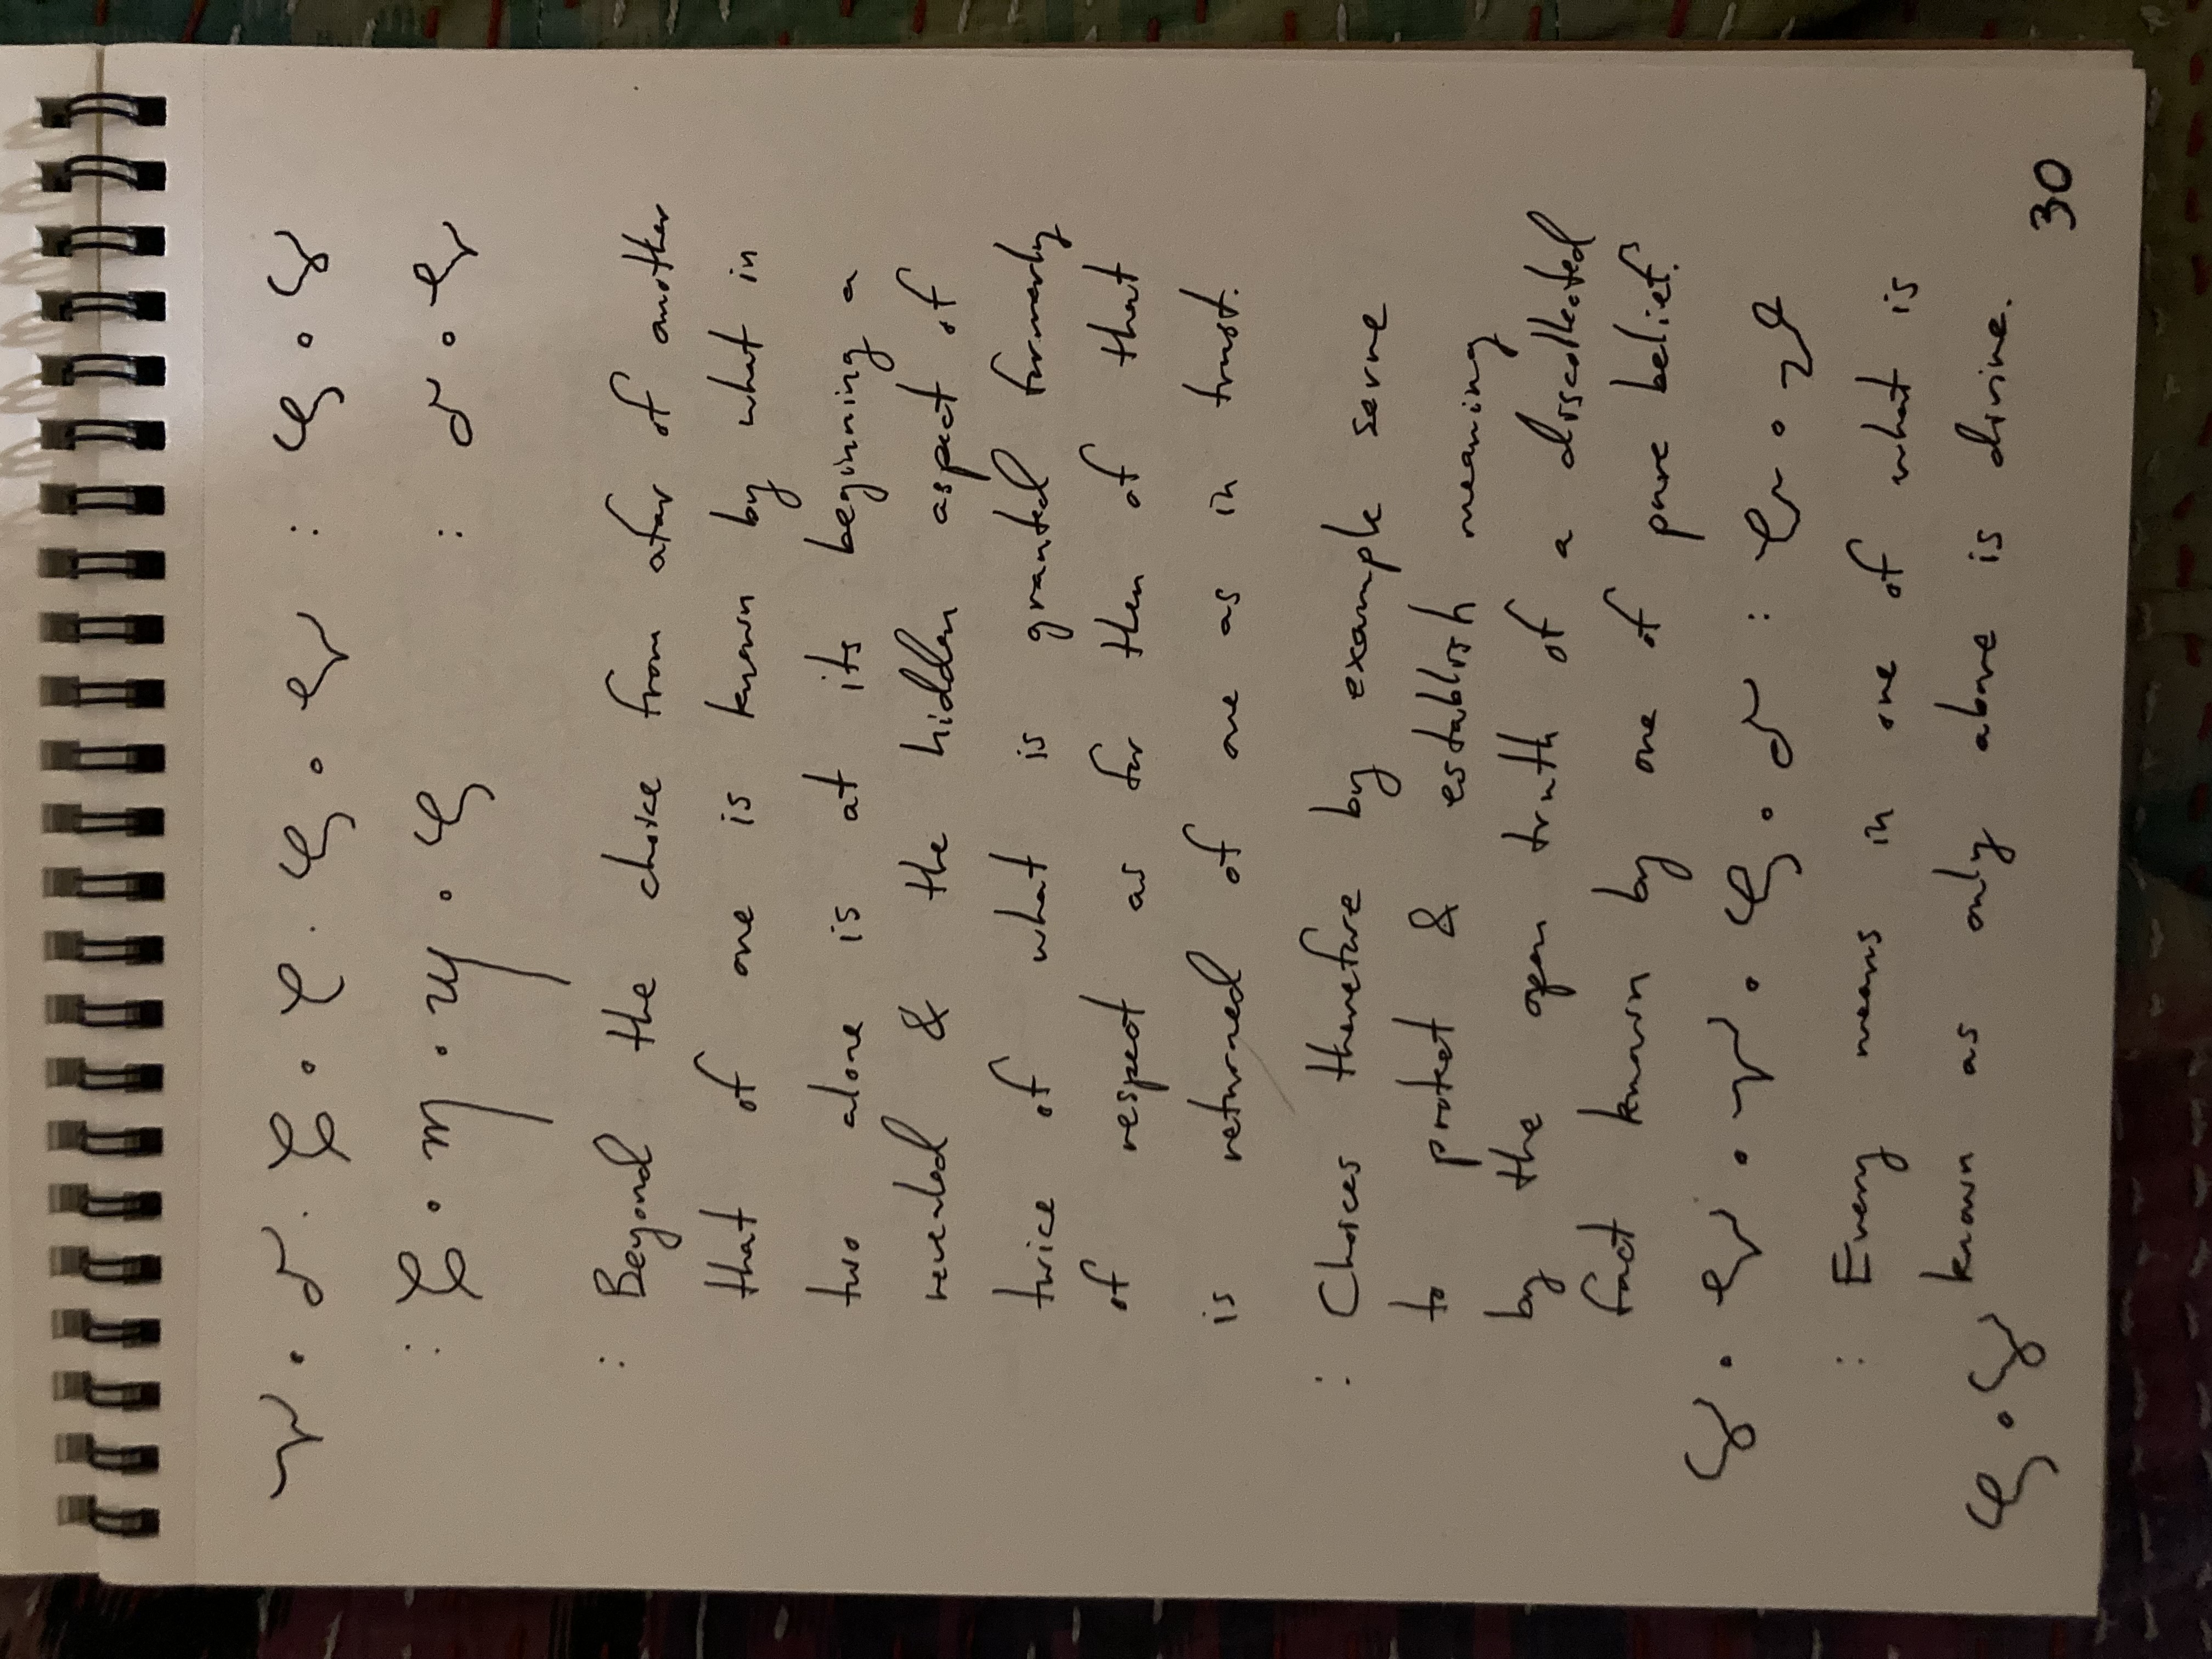 : Beyond the choice from afar of another
that of one is known by what in
two alone is at its beginning a
revealed & the hidden aspect of
twice of what is granted formerly
of respect as for then of that
is returned of one as in trust.
: Choices therefore by example serve
to protect & establish meaning
by the open truth of a discollected
fact known by one of pure belief.
: Every means in one of what is
known as only above is divine.
30